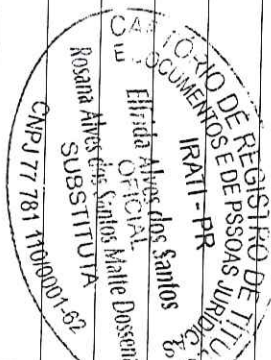 CARTÓRIO DE REGISTRO DE TÍTU
E DOCUMENTOS E DE PSSOAS JURÍDICAS
IRATI - PR
Elfrida Alves dos Santos
OFICIAL
Rosana Alves dos Santos Malte Dossena
SUBSTITUTA
CNPJ 77 781 110/0001-62